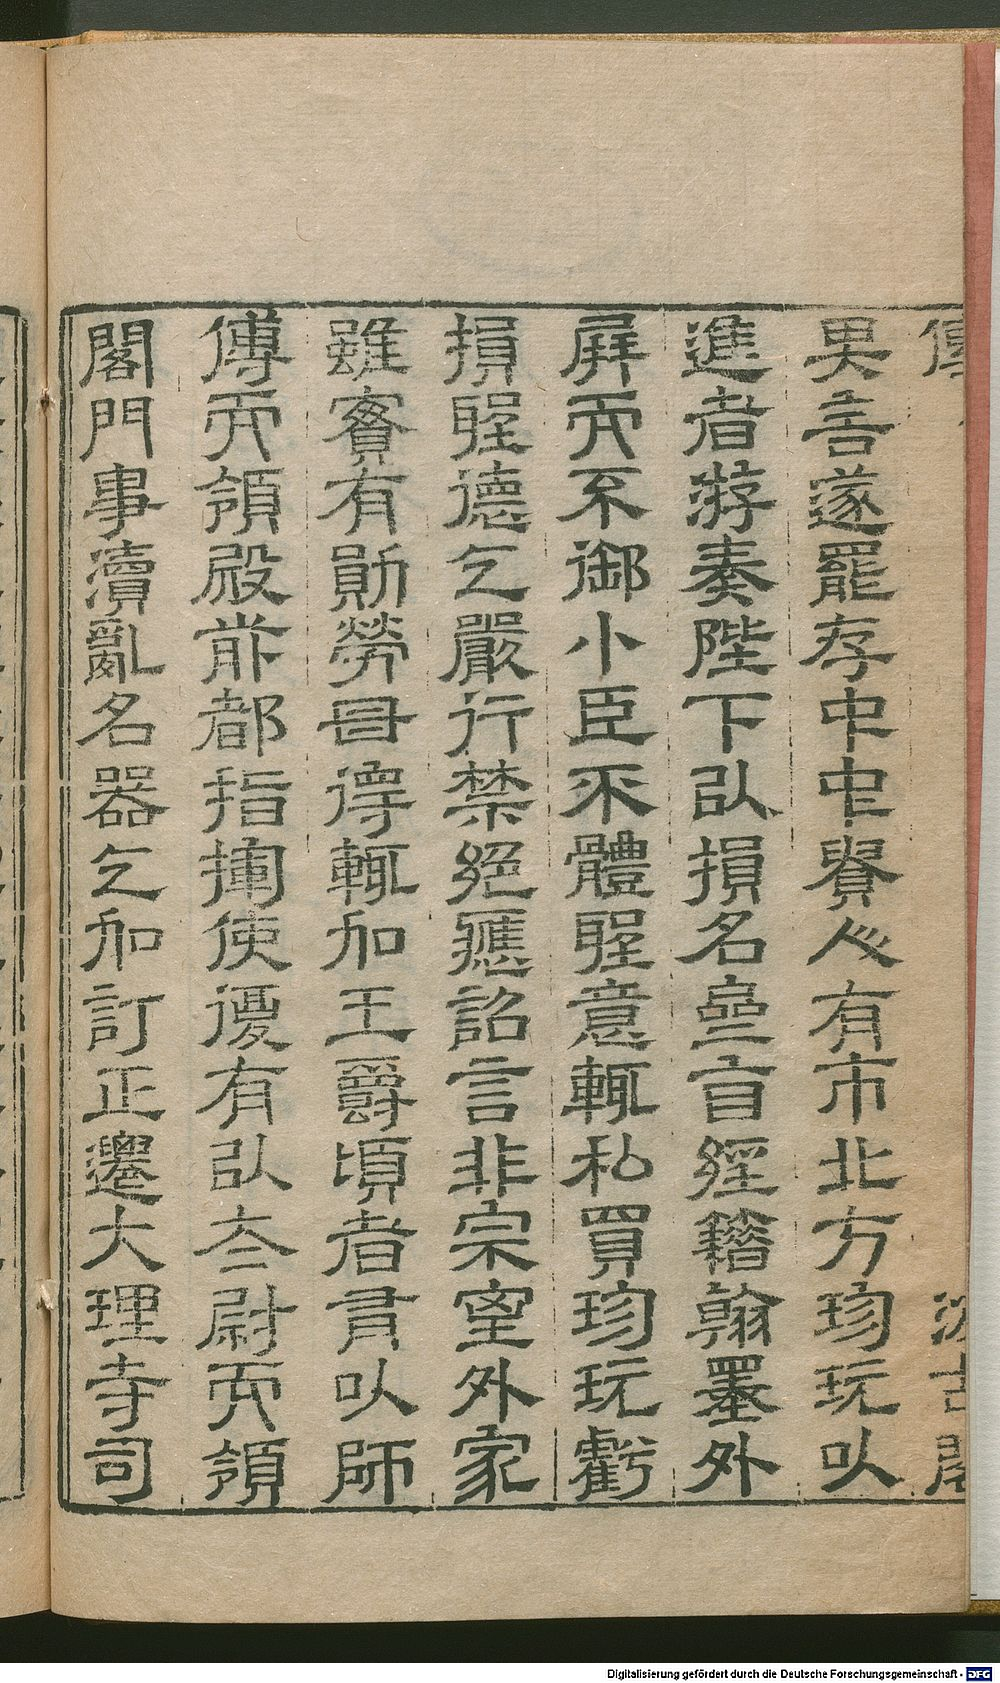 傳
汲古閣
其言遂罷存中中貴人有市北方珍玩以
進者游奏陛下以損名經籍翰墨外
屏而不御小臣不體聖意輒私買珍玩虧
損聖德乞嚴行禁絕應詔言非宗室外家
雖實有勛勞毋得輒加王爵頃者有以師
傅而領殿前都指揮使復有以太尉而領
閤門事瀆亂名器乞加訂正遷大理寺司
Digitalisierung gefördert durch die Deutsche Forschungsgemeinschaft - DFG